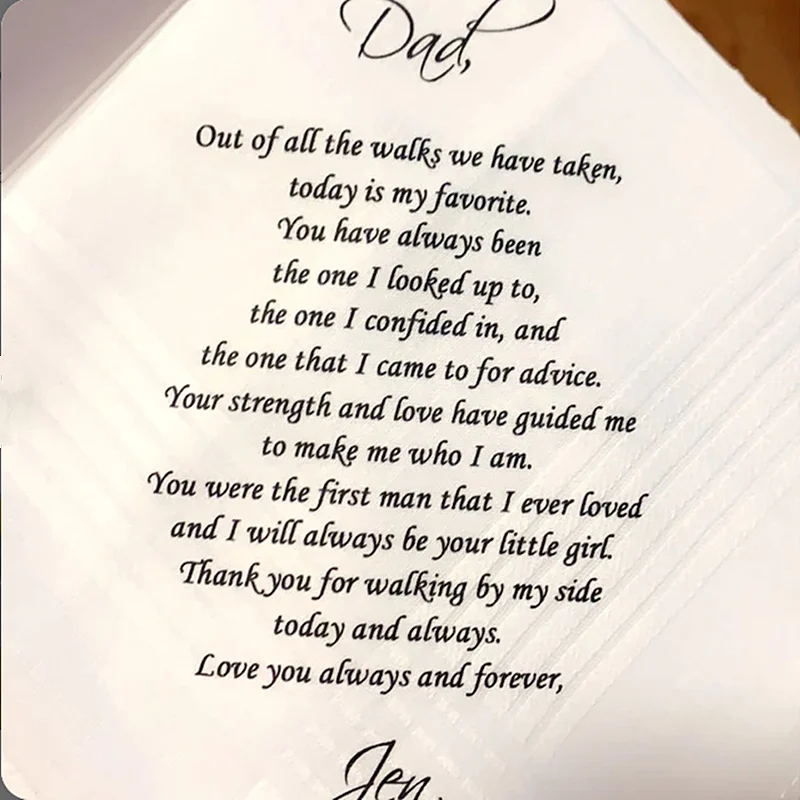 Dad,
Out of all the walks we have taken,
today is my favorite.
You have always been
the one I looked up to,
the one I confided in, and
the one that I came to for advice.
Your strength and love have guided me
to make me who I am.
You were the first man that I ever loved
and I will always be your little girl.
Thank you for walking by my side
today and always.
Love you always and forever,
Jen